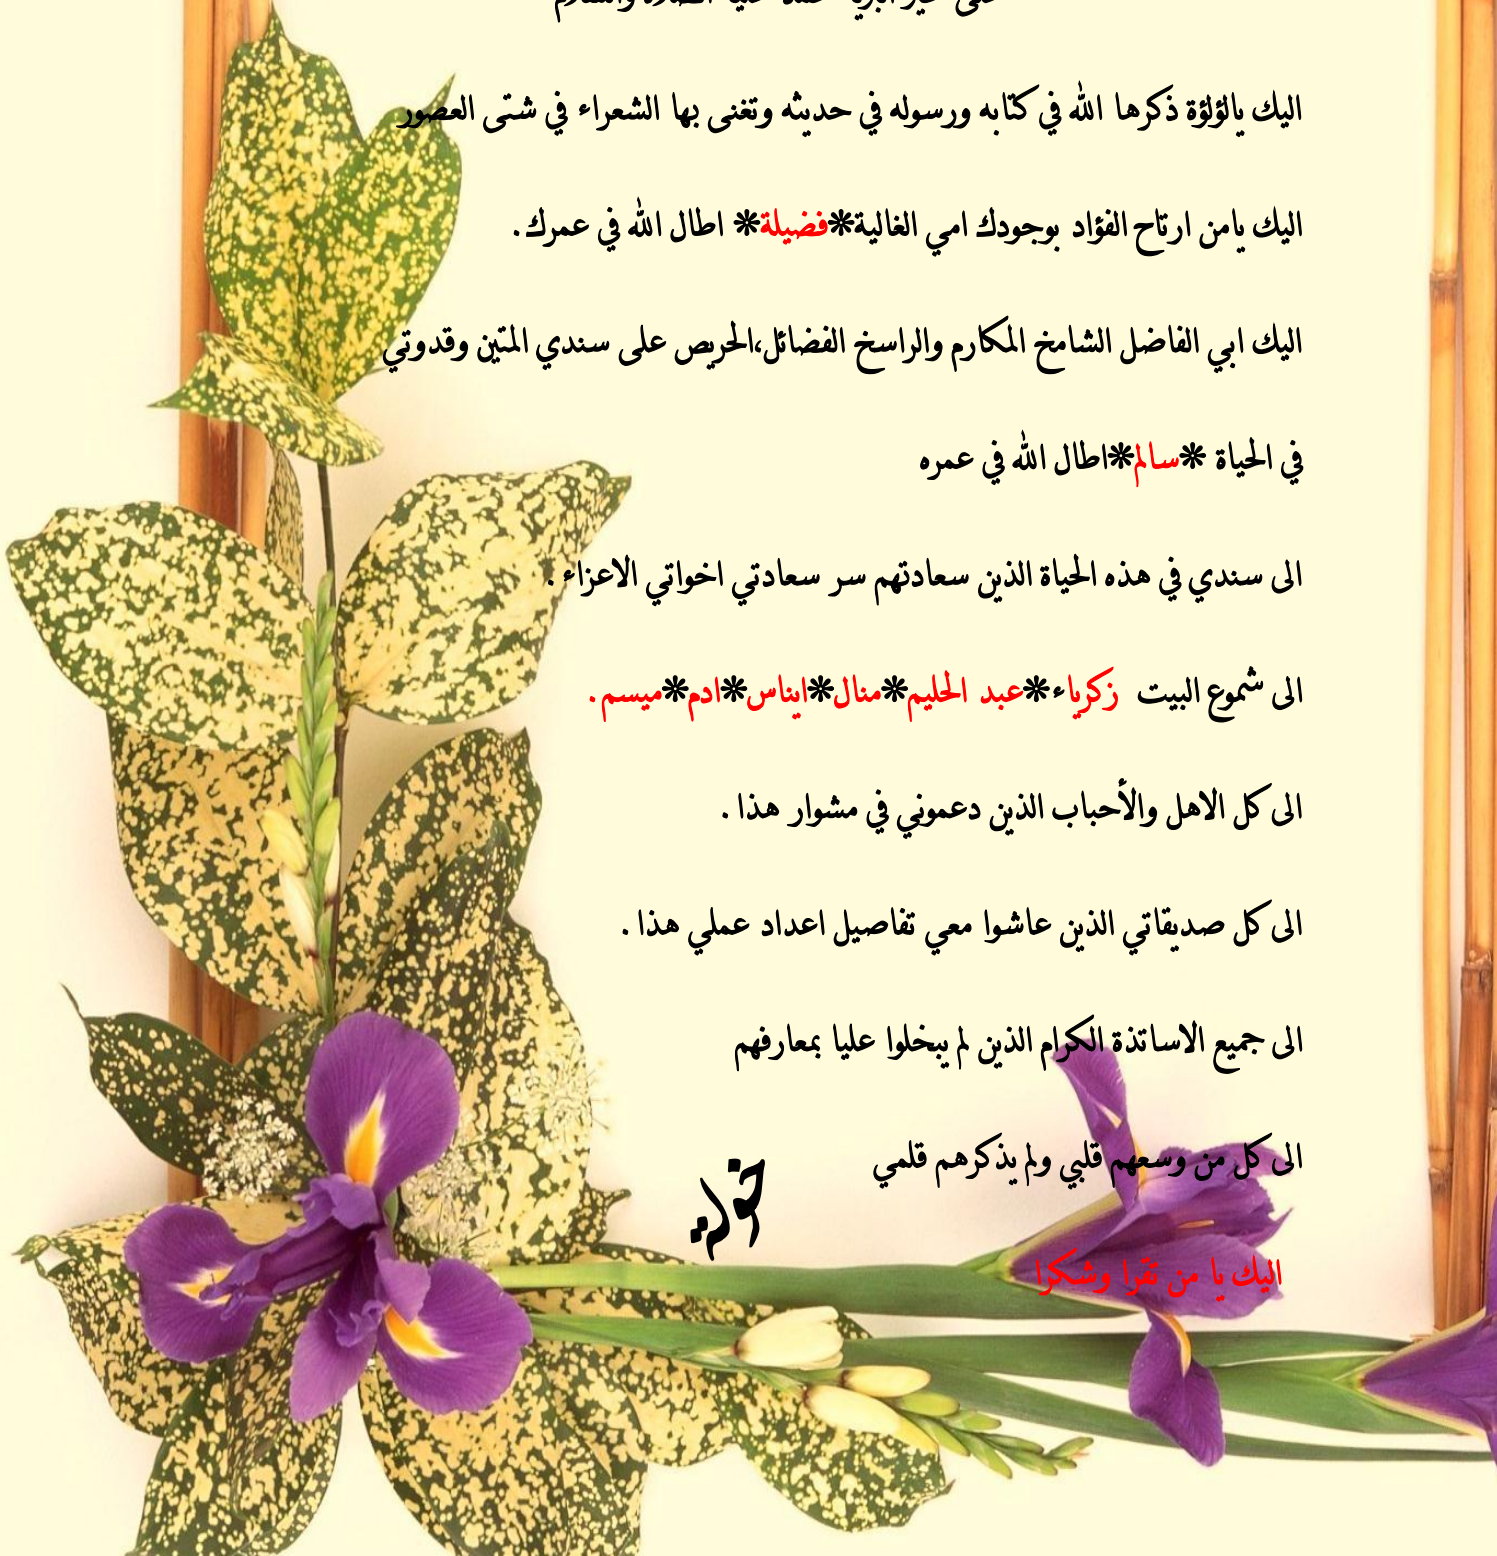 على خير البرية محمد عليه الصلاة والسلام
اليك يالؤلؤة ذكرها الله في كتابه ورسوله في حديثه وتغنى بها الشعراء في شتى العصور
اليك يامن ارتاح الفؤاد بوجودك امي الغالية*فضيلة* اطال الله في عمرك.
اليك ابي الفاضل الشامخ المكارم والراسخ الفضائل،الحريص على سندي المتين وقدوتي
في الحياة *سالم*اطال الله في عمره
الى سندي في هذه الحياة الذين سعادتهم سر سعادتي اخواتي الاعزاء .
الى شموع البيت زكرياء*عبد الحليم*منال*ايناس*ادم*ميسم.
الى كل الاهل والأحباب الذين دعموني في مشوار هذا .
الى كل صديقاتي الذين عاشوا معي تفاصيل اعداد عملي هذا .
الى جميع الاساتذة الكرام الذين لم يبخلوا عليا بمعارفهم
الى كل من وسعهم قلبي ولم يذكرهم قلمي
خولة
اليك يا من تقرا وشكرا